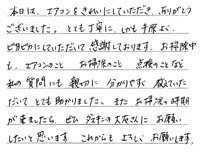 本日は、エアコンをきれいにしていただき、ありがとう
ございました。とても丁寧に、しかも手際よく、
ピカピカにしていただいて感謝しております。お掃除中
も、エアコンのこと お掃除のこと、点検のことなど
私の質問にも親切に分かりやすく教えていた
だいてとても助かりました。またお掃除の時期
が来ましたら、ぜひ ダスキンの大友さんに お願い
したいと思います これからもよろしくお願いします。